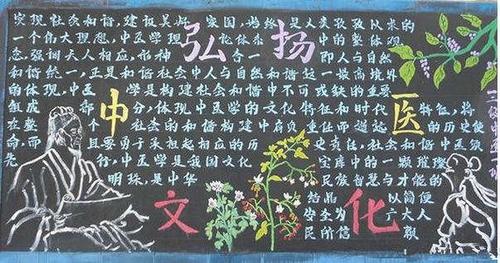 实现社会和谐,建设美好家园,始终是人类孜孜以求的
一个伟大理想,中医学理 化体系 中的整体观
念,强调天人相应,形神 合一 即人与自然
和谐统一,正是和谐社会中人与自然和谐这一最高境界
的体现,中医 学是构建社会和谐中不可或缺的重要
组成 部 分,体现中医学的文化特征和时代 特征,将
在整 个 社会的和谐构建中肩负重任而 起 的历史使
命,而 且要勇于承担起相应的历 史责任,社会和谐中医须
先 行,中医学是我国文化 宝库中的一颗璀璨
明珠,是中华 民族智慧与才能的
结晶 以简便
安全为 广大人
民所信
弘扬
中医
文化